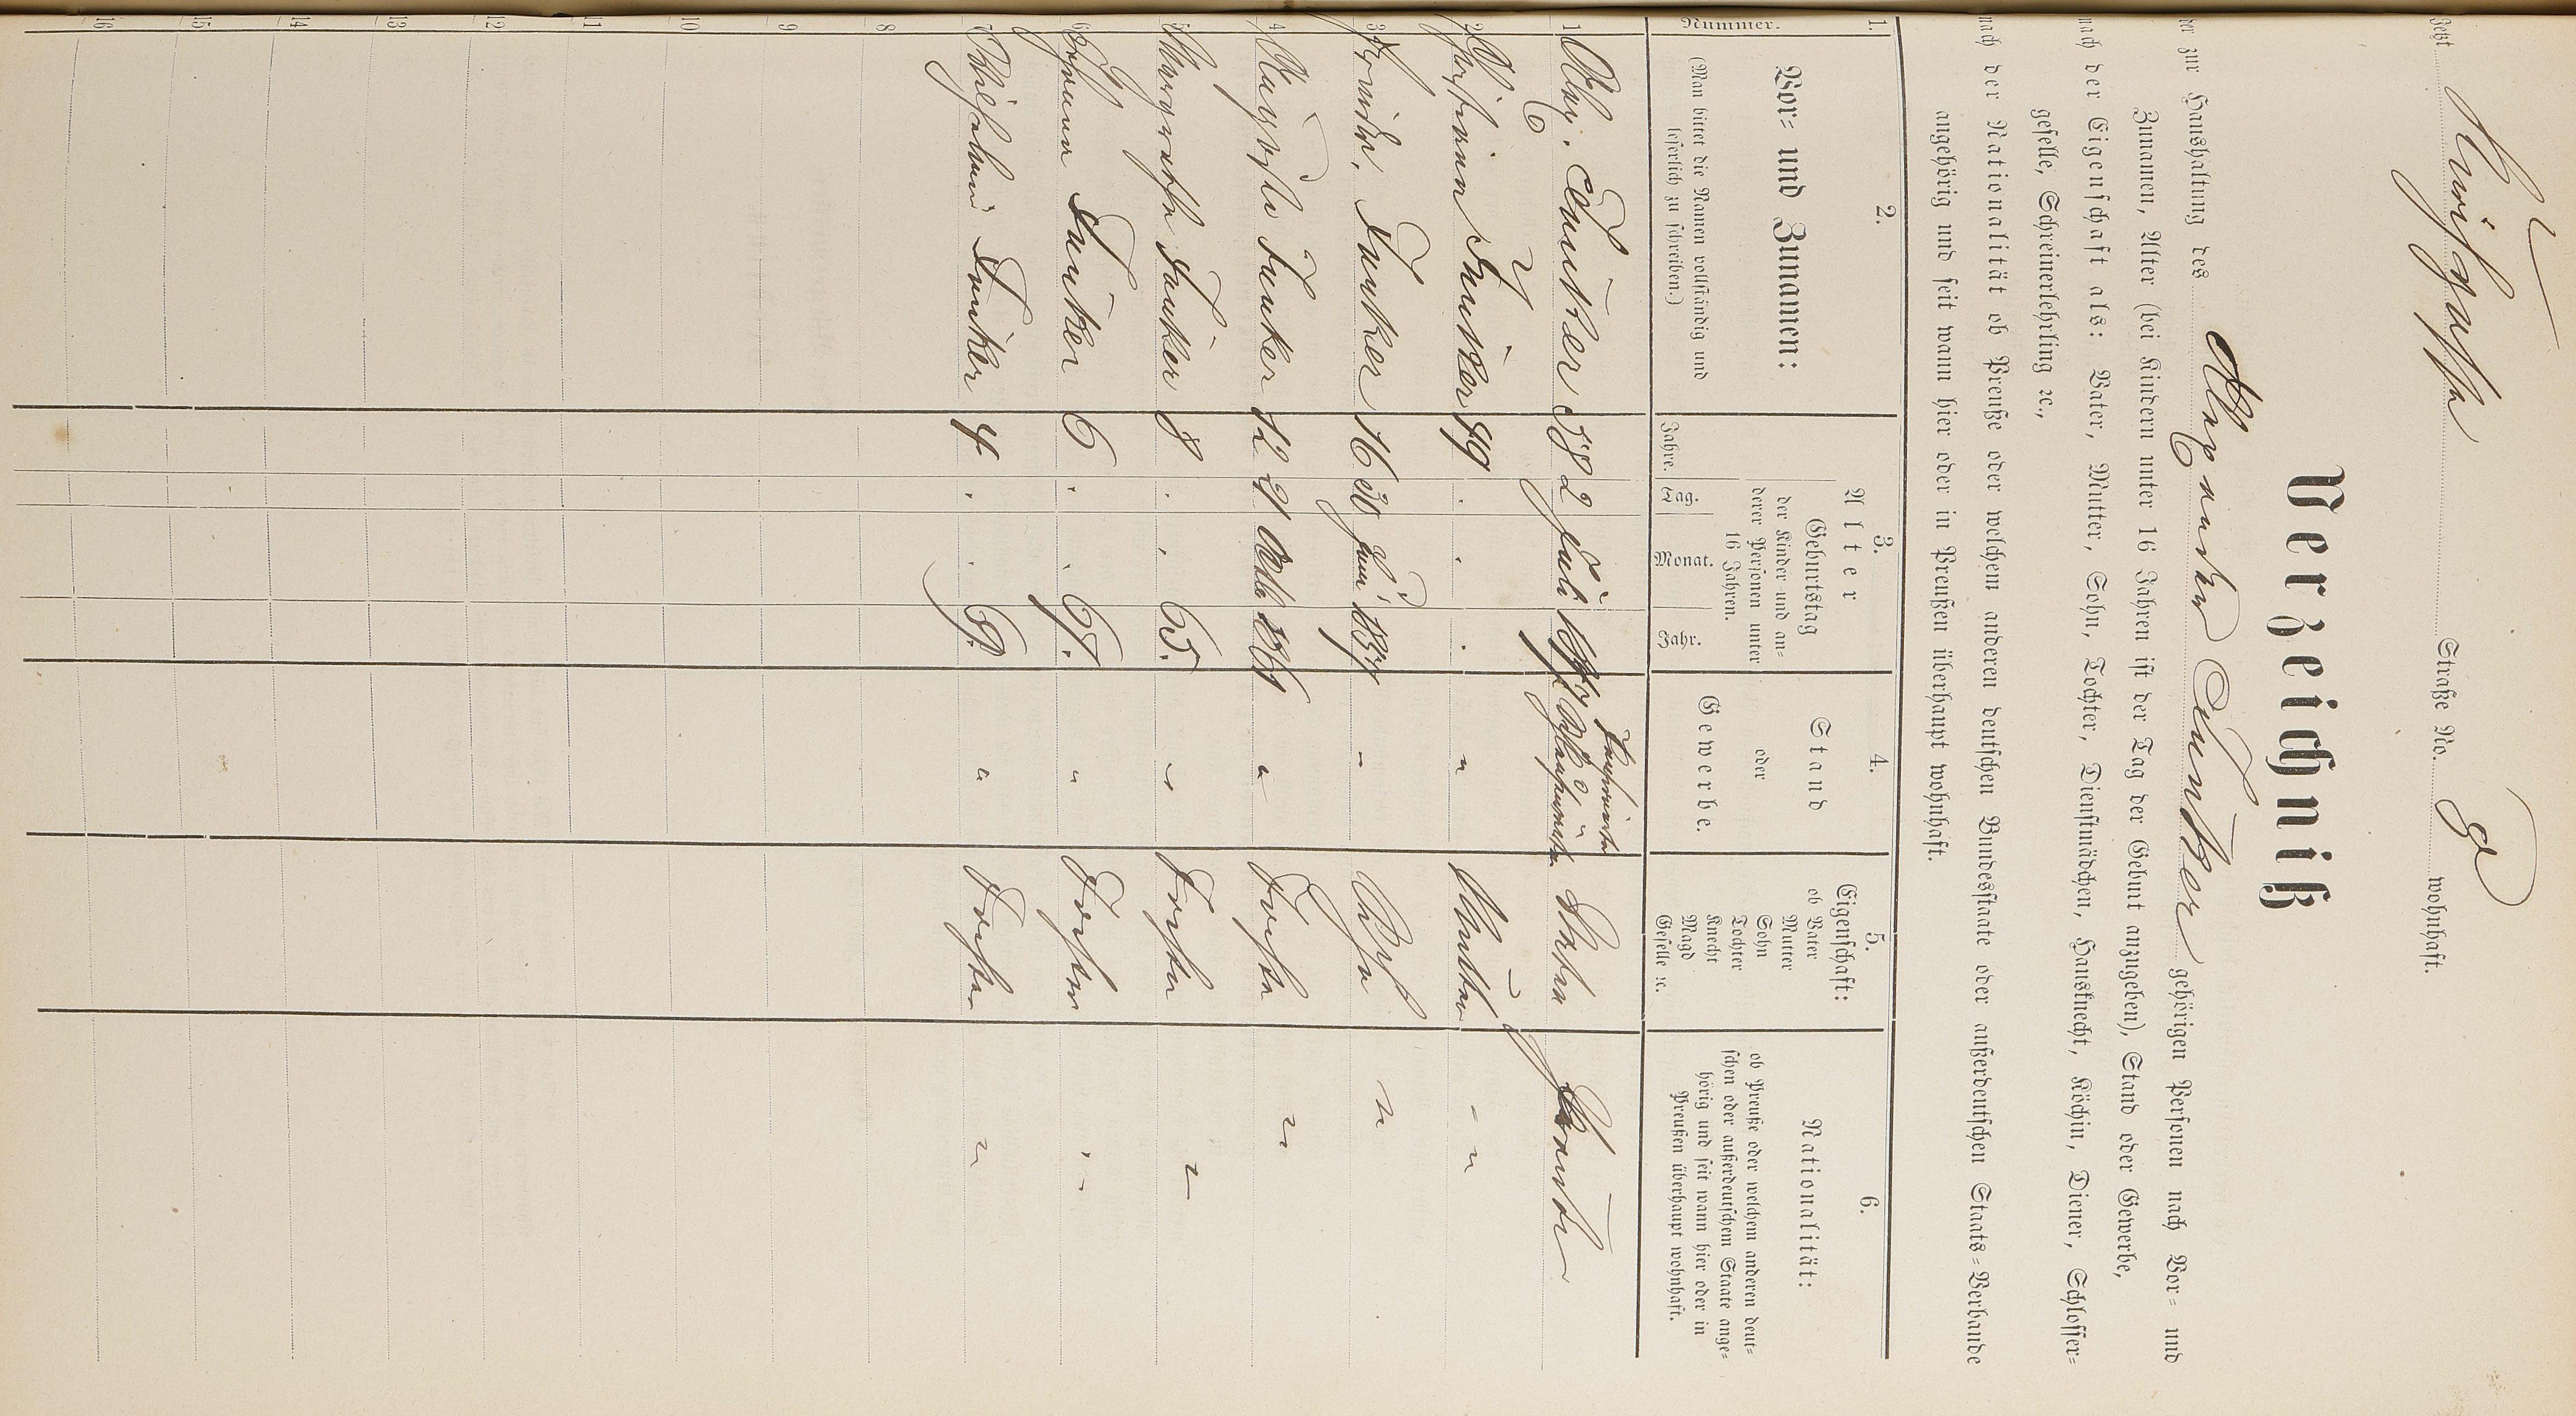 Jetzt Kirchgasse Straße No. 9 wohnhaft.
Verzeichniß
der zur Haushaltung des Alexander Dunker gehörigen Personen nach Vor- und
Zunamen, Alter (bei Kindern unter 16 Jahren ist der Tag der Geburt anzugeben), Stand oder Gewerbe,
nach der Eigenschaft als: Vater, Mutter, Sohn, Tochter, Dienstmädchen, Hausknecht, Köchin, Diener, Schlosser-
geselle, Schreinerlehrling ꝛc.,
nach der Nationalität ob Preuße oder welchem anderen deutschen Bundesstaate oder außerdeutschen Staats-Verbande
angehörig und seit wann hier oder in Preußen überhaupt wohnhaft.
1. 2. 3. 4. 5. 6.
Nummer.
Vor- und Zunamen:
(Man bittet die Namen vollständig und
leserlich zu schreiben.)
Alter
Geburtstag
der Kinder und an-
derer Personen unter
16 Jahren.
Jahre. Tag. Monat. Jahr.
Stand
oder
Gewerbe.
Eigenschaft:
ob Vater
Mutter
Sohn
Tochter
Knecht
Magd
Geselle ꝛc.
Nationalität:
ob Preuße oder welchem anderen deut-
schen oder außerdeutschem Staate ange-
hörig und seit wann hier oder in
Preußen überhaupt wohnhaft.
1 Alex. Dunker 58 2 Juli Vater
2 Dunker 49 . . . " Mutter " "
3 Dunker 16 30 Juni 1857 " "
4 Auguste Dunker 12 21 1861 " Tochter "
5 Margrethe Dunker 8 . . 65. " Tochter "
6 Johanna Dunker 6 . . 67. " Tochter "
7 Dunker 4 . . 69. " Tochter "
8
9
10
11
12
13
14
15
16